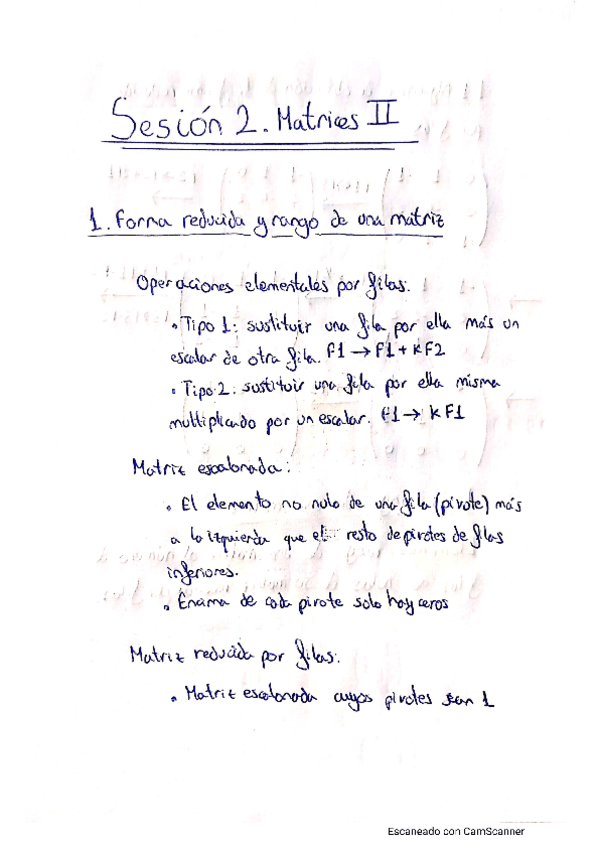 Sesión 2. Matrices II
1. Forma reducida y rango de una matriz
Operaciones elementales por filas:
• Tipo 1: sustituir una fila por ella más un
escalar de otra fila. F1 → F1 + K F2
• Tipo 2: sustituir una fila por ella misma
multiplicado por un escalar. F1 → K F1
Matriz escalonada:
• El elemento no nulo de una fila (pivote) más
a la izquierda que el resto de pivotes de filas
inferiores.
• Encima de cada pivote solo hay ceros
Matriz reducida por filas:
• Matriz escalonada cuyos pivotes sean 1
Escaneado con CamScanner